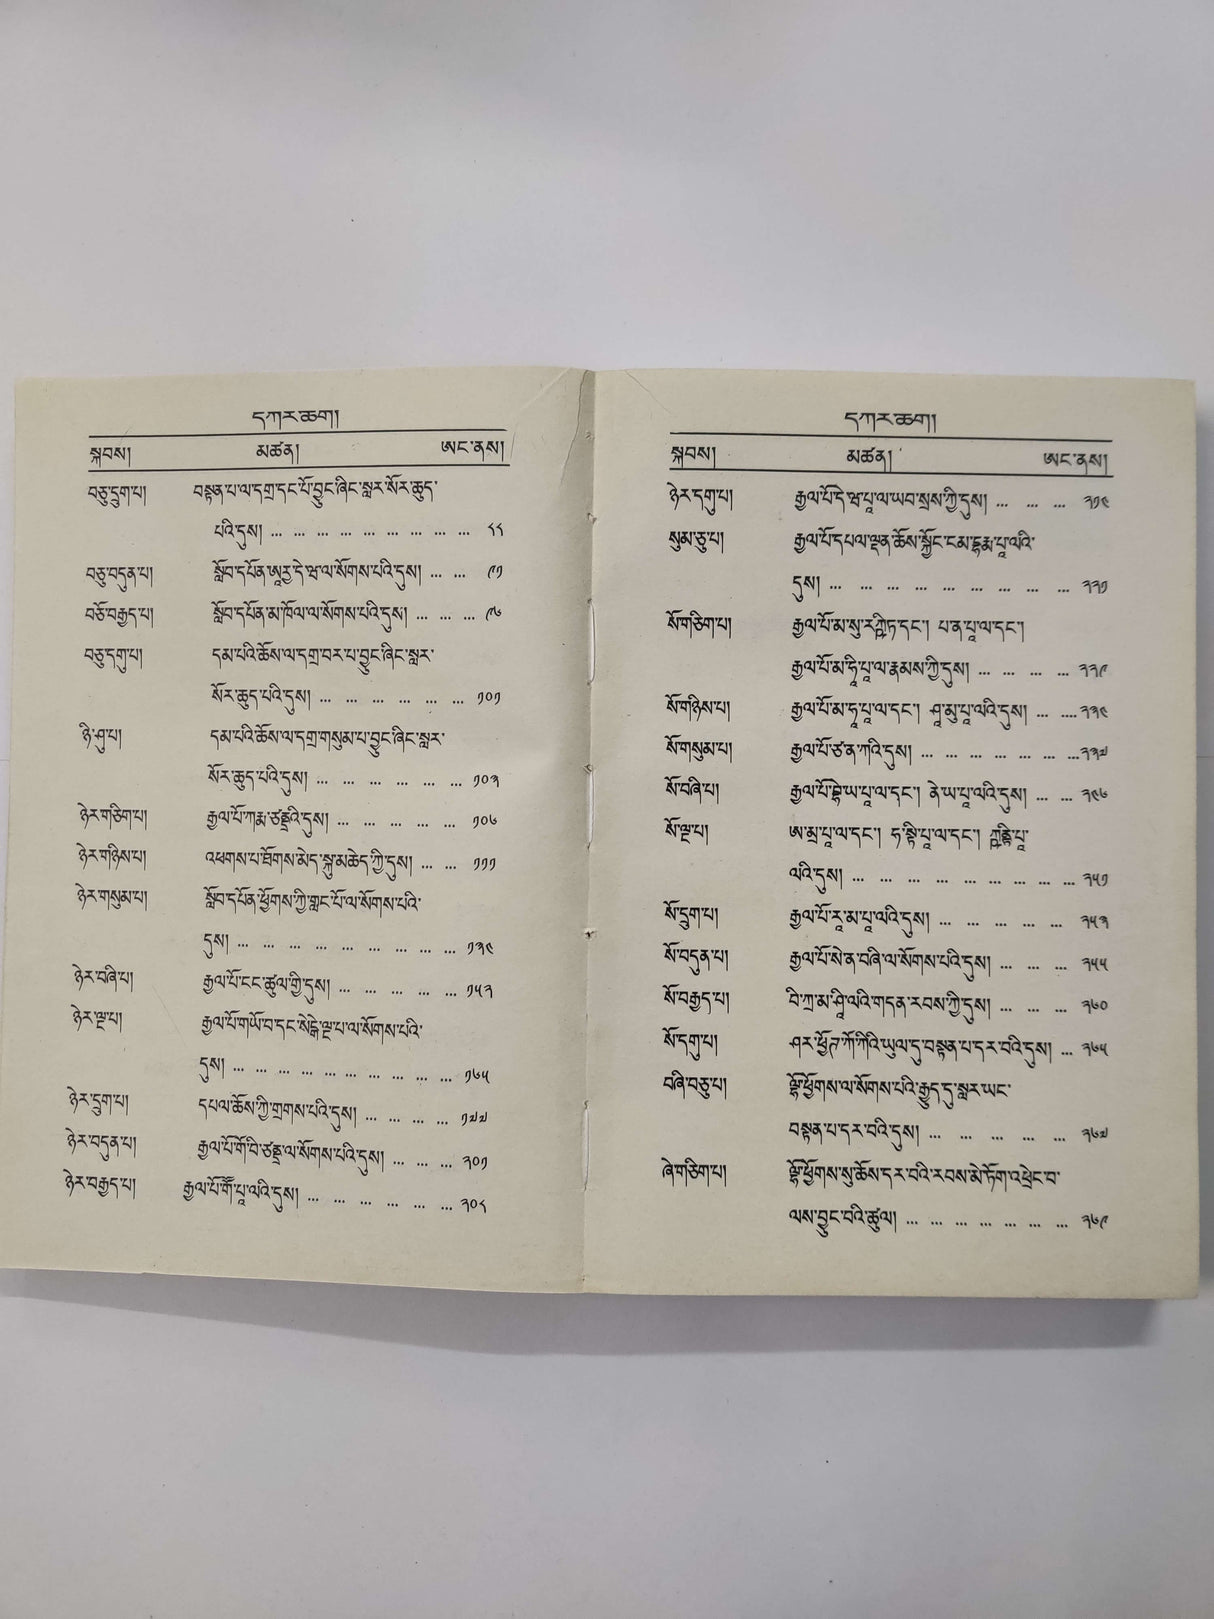 དཀར་ཆག།
སྐབས། མཚན། ཨང་ནས།
བཅུ་དྲུག་པ། བསྟན་པ་ལ་དགྲ་དང་པོ་བྱུང་ཞིང་སླར་སོར་ཆུད་
པའི་དུས། ... ... ... ... ... ... ... ... ... ༨༨
བཅུ་བདུན་པ། སློབ་དཔོན་ཨཱརྱ་དེ་ཝ་ལ་སོགས་པའི་དུས། ... ... ༩༡
བཅོ་བརྒྱད་པ། སློབ་དཔོན་མ་ཁོལ་ལ་སོགས་པའི་དུས། ... ... ... ༩༦
བཅུ་དགུ་པ། དམ་པའི་ཆོས་ལ་དགྲ་བར་པ་བྱུང་ཞིང་སླར་
སོར་ཆུད་པའི་དུས། ... ... ... ... ... ... ༡༠༡
ཉི་ཤུ་པ། དམ་པའི་ཆོས་ལ་དགྲ་གསུམ་པ་བྱུང་ཞིང་སླར་
སོར་ཆུད་པའི་དུས། ... ... ... ... ... ... ༡༠༣
ཉེར་གཅིག་པ། རྒྱལ་པོ་ཀརྨ་ཙནྡྲའི་དུས། ... ... ... ... ... ༡༠༦
ཉེར་གཉིས་པ། འཕགས་པ་ཐོགས་མེད་སྐུ་མཆེད་ཀྱི་དུས། ... ... ༡༡༡
ཉེར་གསུམ་པ། སློབ་དཔོན་ཕྱོགས་ཀྱི་གླང་པོ་ལ་སོགས་པའི་
དུས། ... ... ... ... ... ... ... ... ... ༡༣༤
ཉེར་བཞི་པ། རྒྱལ་པོ་ངང་ཚུལ་གྱི་དུས། ... ... ... ... ... ༡༥༢
ཉེར་ལྔ་པ། རྒྱལ་པོ་གཡོ་བ་དང་སེངྒེ་ལྔ་པ་ལ་སོགས་པའི་
དུས། ... ... ... ... ... ... ... ... ... ... ༡༦༥
ཉེར་དྲུག་པ། དཔལ་ཆོས་ཀྱི་གྲགས་པའི་དུས། ... ... ... ... ༡༧༧
ཉེར་བདུན་པ། རྒྱལ་པོ་གོ་བི་ཙནྡྲ་ལ་སོགས་པའི་དུས། ... ... ... ༢༠༡
ཉེར་བརྒྱད་པ། རྒྱལ་པོ་གོ་པཱ་ལའི་དུས། ... ... ... ... ... ... ༢༠༨
དཀར་ཆག།
སྐབས། མཚན། ཨང་ནས།
ཉེར་དགུ་པ། རྒྱལ་པོ་དེ་ཝ་པཱ་ལ་ཡབ་སྲས་ཀྱི་དུས། ... ... ... ༢༡༤
སུམ་ཅུ་པ། རྒྱལ་པོ་དཔལ་ལྡན་ཆོས་སྐྱོང་ངམ་དྷརྨ་པཱ་ལའི་
དུས། ... ... ... ... ... ... ... ... ... ༢༢༡
སོ་གཅིག་པ། རྒྱལ་པོ་མ་སུ་རཀྵི་ཏ་དང་། པ་ན་པཱ་ལ་དང་།
རྒྱལ་པོ་མ་ཧཱི་པཱ་ལ་རྣམས་ཀྱི་དུས། ... ... ... ... ༢༢༩
སོ་གཉིས་པ། རྒྱལ་པོ་མ་ཧཱ་པཱ་ལ་དང་། ཤཱ་མུ་པཱ་ལའི་དུས། ... .... ༢༣༤
སོ་གསུམ་པ། རྒྱལ་པོ་ཙ་ན་ཀའི་དུས། ... ... ... ... ... ... ... ༢༣༧
སོ་བཞི་པ། རྒྱལ་པོ་བྷེ་ཡ་པཱ་ལ་དང་། ནེ་ཡ་པཱ་ལའི་དུས། ... ... ༢༤༦
སོ་ལྔ་པ། ཨ་མྲ་པཱ་ལ་དང་། ཧ་སྟི་པཱ་ལ་དང་། ཀྵནྟི་པཱ་
ལའི་དུས། ... ... ... ... ... ... ... ... ... ༢༥༡
སོ་དྲུག་པ། རྒྱལ་པོ་རཱ་མ་པཱ་ལའི་དུས། ... ... ... ... ... ༢༥༣
སོ་བདུན་པ། རྒྱལ་པོ་སེ་ན་བཞི་ལ་སོགས་པའི་དུས། ... ... ... ༢༥༥
སོ་བརྒྱད་པ། བི་ཀྲ་མ་ཤཱི་ལའི་གདན་རབས་ཀྱི་དུས། ... ... ... ༢༦༠
སོ་དགུ་པ། ཤར་ཕྱོཊ་ཀོ་ཀིའི་ཡུལ་དུ་བསྟན་པ་དར་བའི་དུས། ... ༢༦༥
བཞི་བཅུ་པ། ལྷོ་ཕྱོགས་ལ་སོགས་པའི་རྒྱུད་དུ་སླར་ཡང་
བསྟན་པ་དར་བའི་དུས། ... ... ... ... ... ༢༦༧
ཞེ་གཅིག་པ། ལྷོ་ཕྱོགས་སུ་ཆོས་དར་བའི་རབས་མེ་ཏོག་འཕྲེང་བ་
ལས་བྱུང་བའི་ཚུལ། ... ... ... ... ... ... ... ༢༦༩